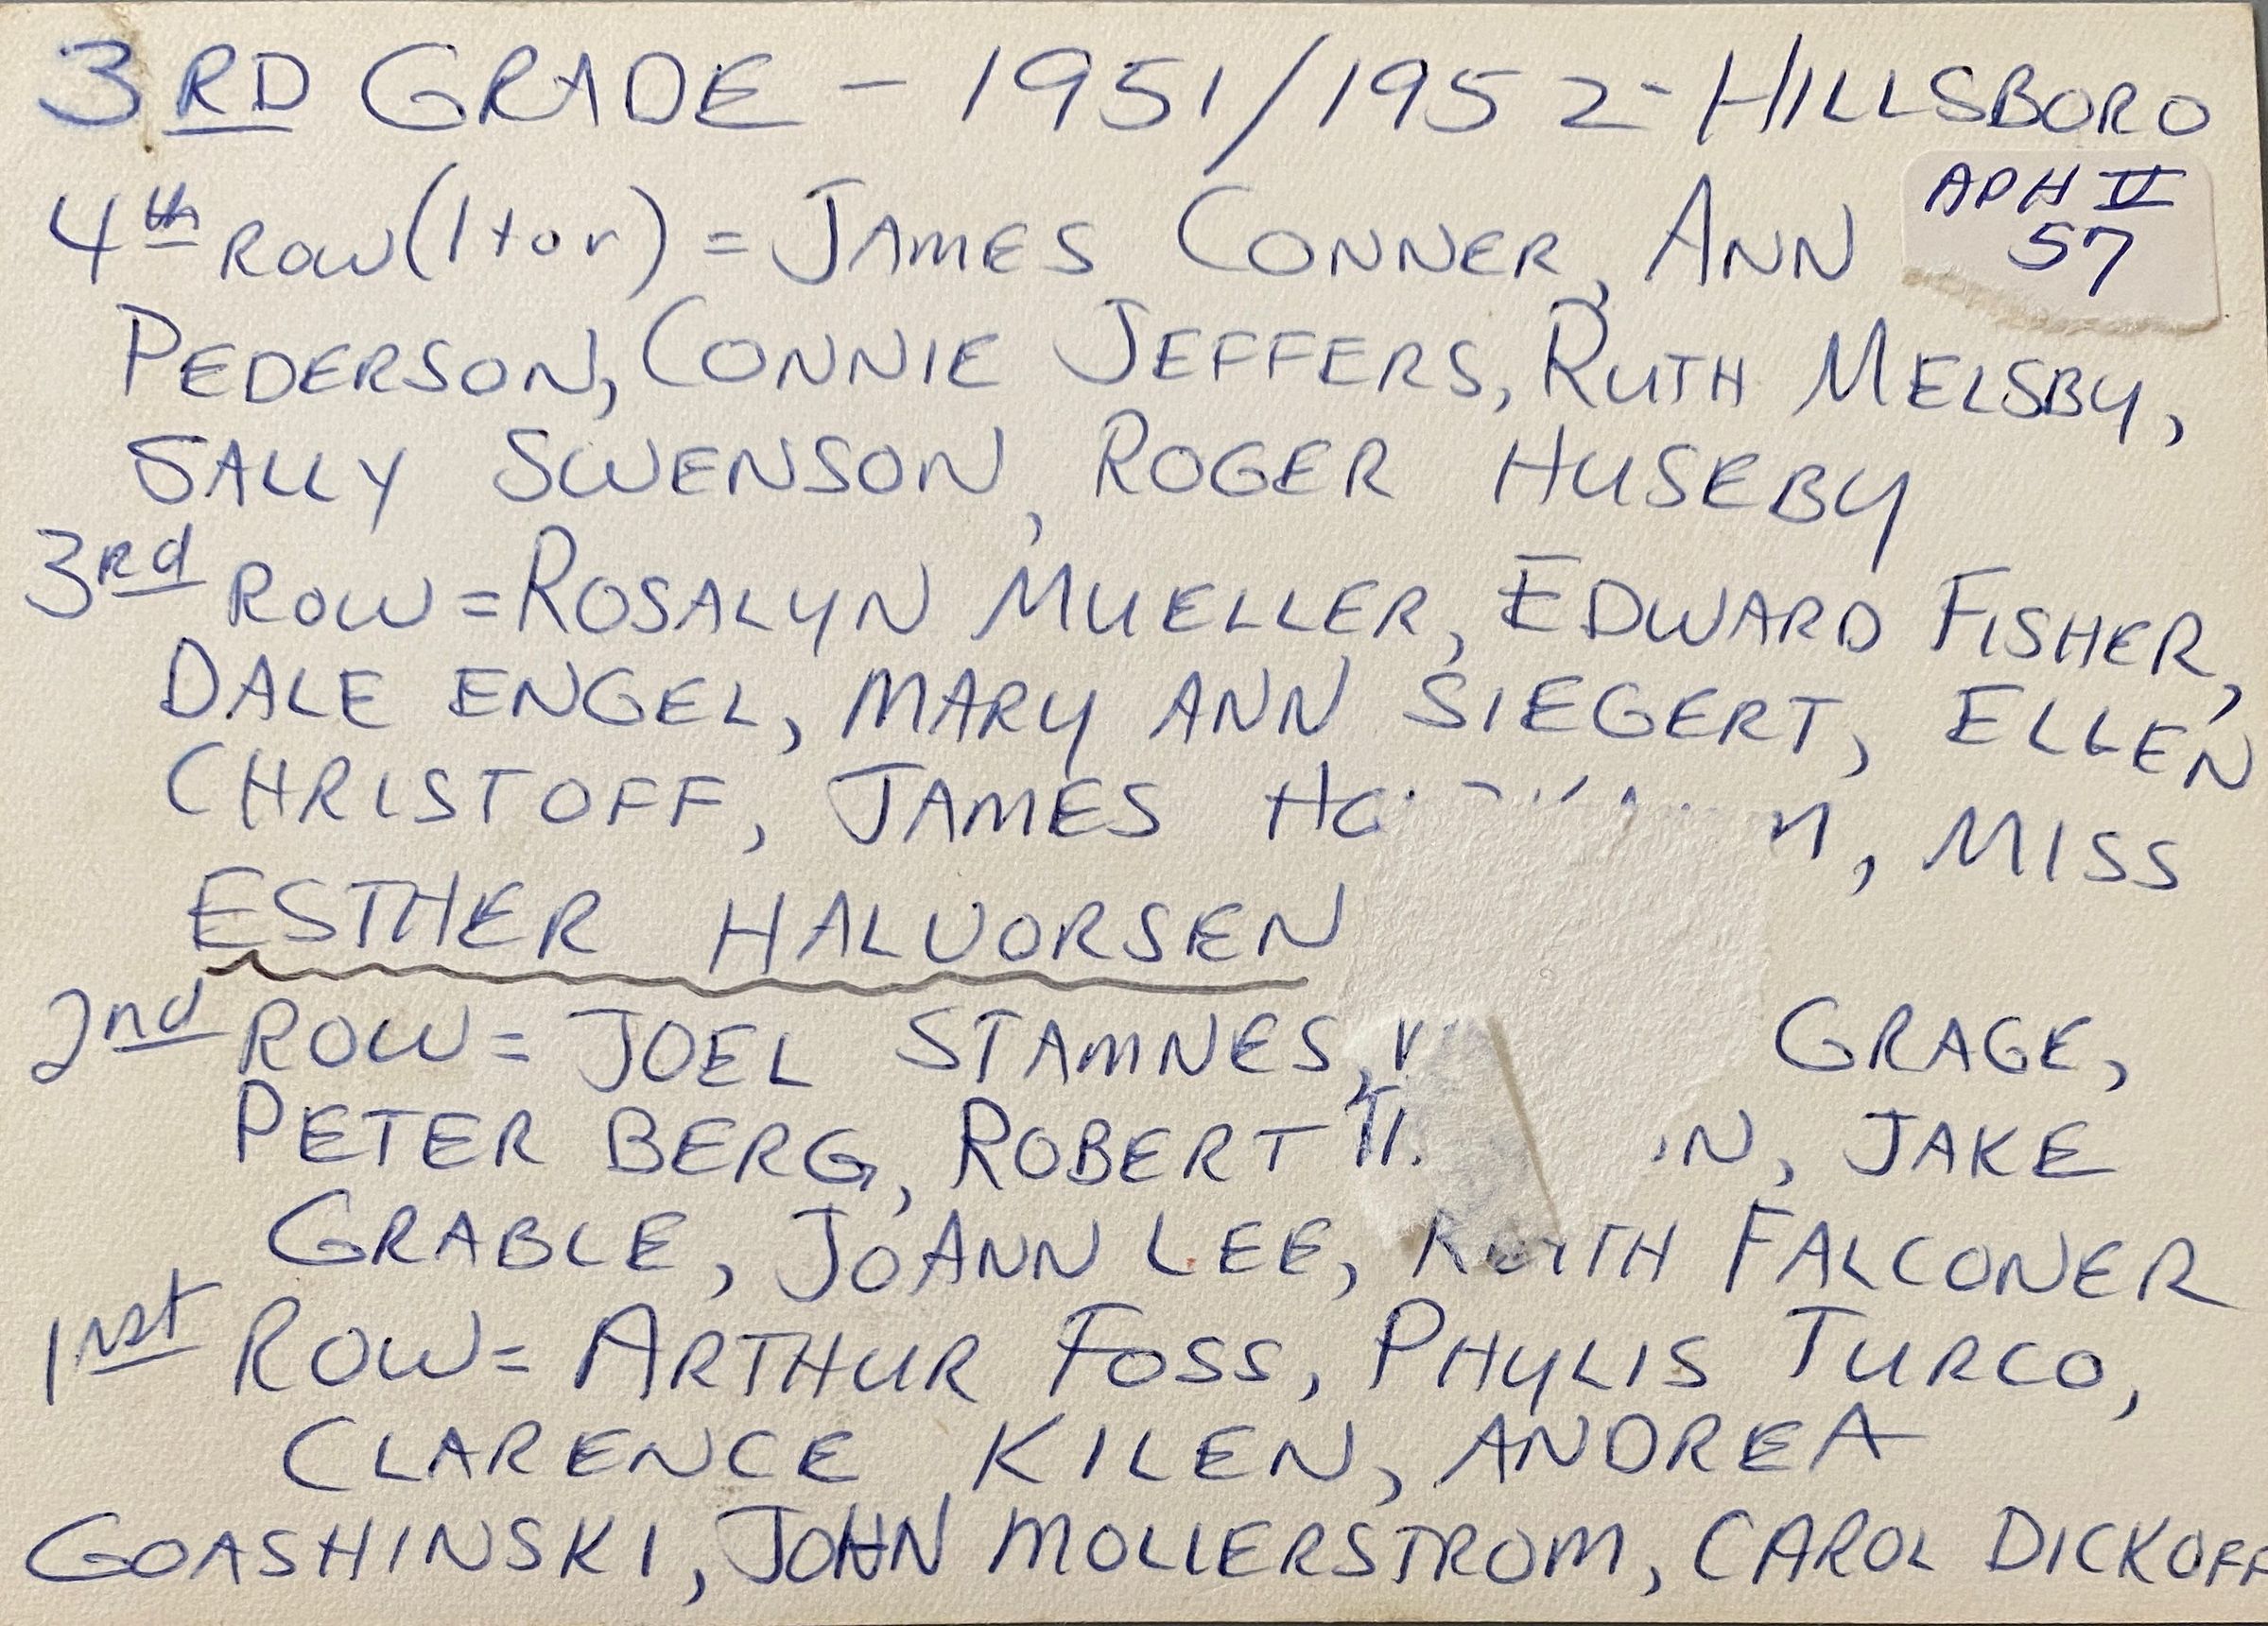 3RD GRADE - 1951/1952 - HILLSBORO
APH II
57
4th ROW (l to r) = JAMES CONNER, ANN
PEDERSON, CONNIE JEFFERS, RUTH MELSBY,
SALLY SWENSON, ROGER HUSEBY
3rd ROW = ROSALYN MUELLER, EDWARD FISHER,
DALE ENGEL, MARY ANN SIEGERT, ELLEN
CHRISTOFF, JAMES , MISS
ESTHER HALVORSEN
2nd ROW = JOEL STAMNES, GRAGE,
PETER BERG, ROBERT , JAKE
GRABLE, JOANN LEE, FALCONER
1rst ROW = ARTHUR FOSS, PHYLIS TURCO,
CLARENCE KILEN, ANDREA
GOASHINSKI, JOHN MOLLERSTROM, CAROL DICKOFF